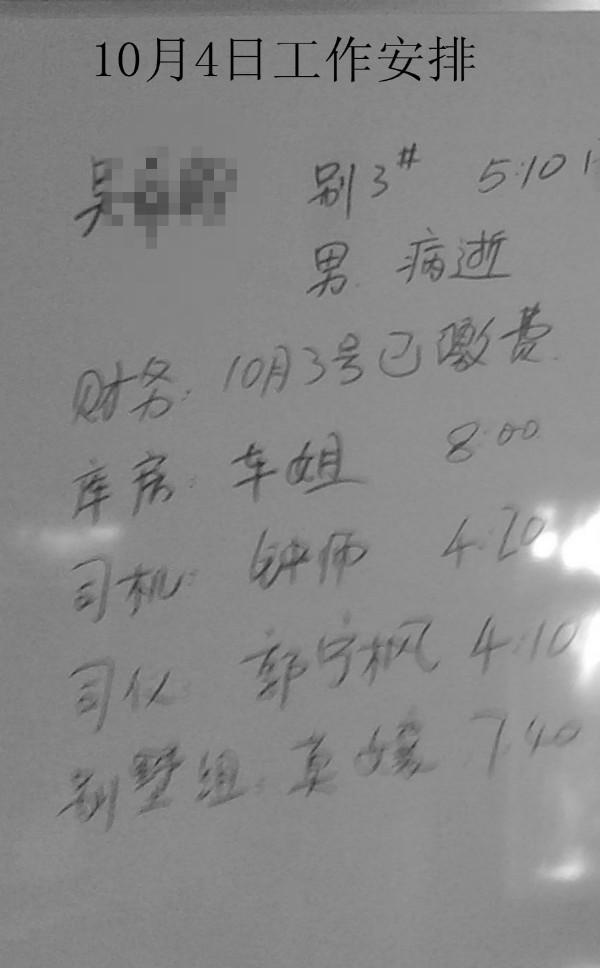 10月4日工作安排
吴 别3# 5:10
男 病逝
财务: 10月3号已缴费
库房: 车姐 8:00
司机: 钟师 4:20
司仪 郭宁枫 4:10
别墅组: 7:40